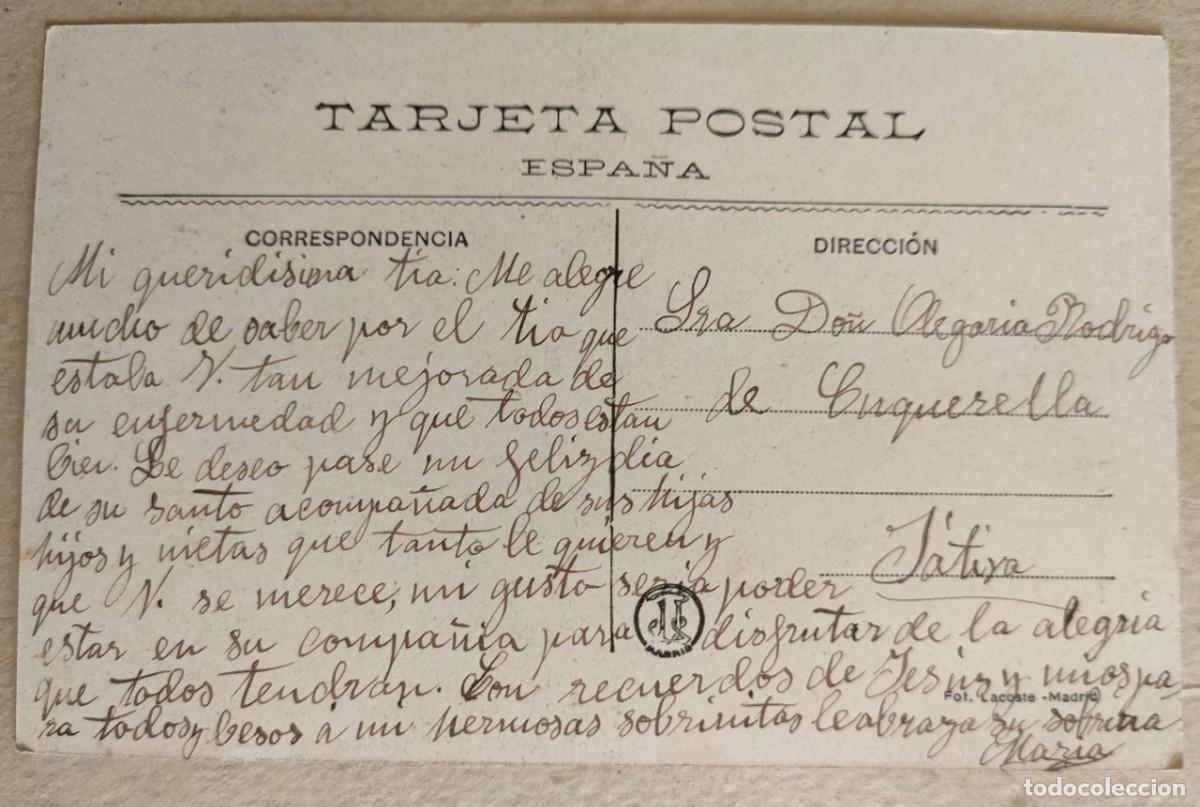 TARJETA POSTAL
ESPAÑA
CORRESPONDENCIA
Mi queridisima tia: Me alegre
mucho de saber por el tio que
estaba V. tan mejorada de
su enfermedad y que todos estan
bien. Le deseo pase un feliz dia
de su santo acompañada de sus hijas
hijos y nietas que tanto le quieren y
que V. se merece, mi gusto seria poder
estar en su compañia para disfrutar de la alegria
que todos tendran. Con recuerdos de Jesus y mios pa
ra todos y besos á mi hermosas sobrinitas le abraza su sobrina
Maria
DIRECCIÓN
Sra Doñ Olegaria Rodrigo
de Cuquerella
Játiva
MADRID
Fot. Lacoste - Madrid
todocoleccion